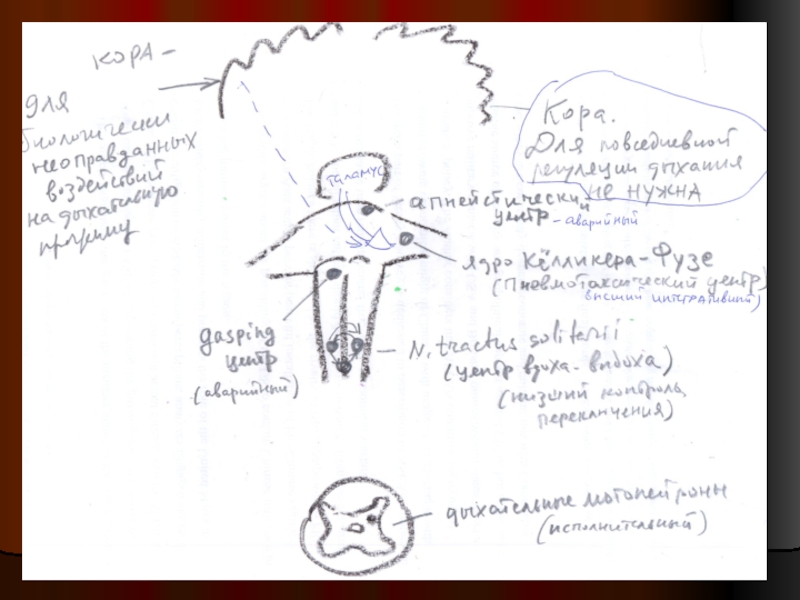 КОРА –
для
биологически
неоправданных
воздействий
на дыхательную
программу
Кора.
Для повседневной
регуляции дыхания
не нужна
таламус
апнейстический
центр – аварийный
ядро Кёлликера-Фузе
(Пневмотаксический центр)
высший интегративный)
gasping
центр
(аварийный)
N. tractus solitarii
(центр вдоха-выдоха)
(низший контроль,
переключения)
дыхательные мотонейроны
(исполнительный)